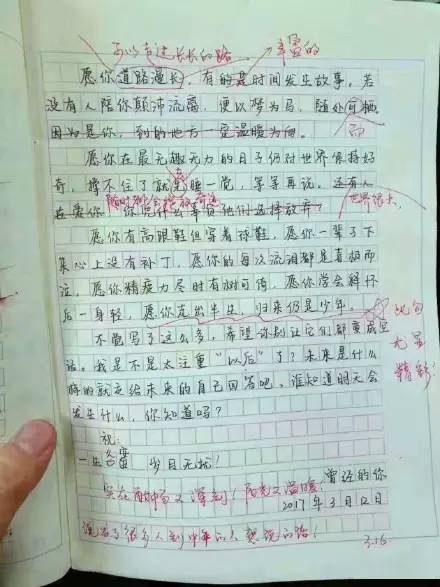 可以走过长长的路 丰盈的
愿你道路漫长，有的是时间发生故事。若
没有人陪你颠沛流离，便以梦为马，随处可栖
因为是你，到的地方一定温暖为向。 而
愿你在最无趣无力的日子仍对世界保持好
奇，撑不住了就先睡一觉，等等再说。还有人
在爱你，你凭什么辜负他们选择放弃？ 世界很大。
愿你有高跟鞋但穿着球鞋，愿你一辈子下
来心上没有补丁，愿你的每次流泪都是喜极而
泣，愿你精疲力尽时有树可倚，愿你学会释怀
后一身轻，愿你走出半生，归来仍是少年。 此句
不觉写了这么多，希望你别让它们都变成空 尤显
话。我是不是太注重“以后”了？未来是什么 精彩！
样的就交给未来的自己回答吧，谁知道明天会
发生什么，你知道吗？
祝：
一生 岁月无忧！
实在而深刻！阳光又温暖 曾经的你
2017年3月12日
说出了很多人到中年的人 的路！
3.16